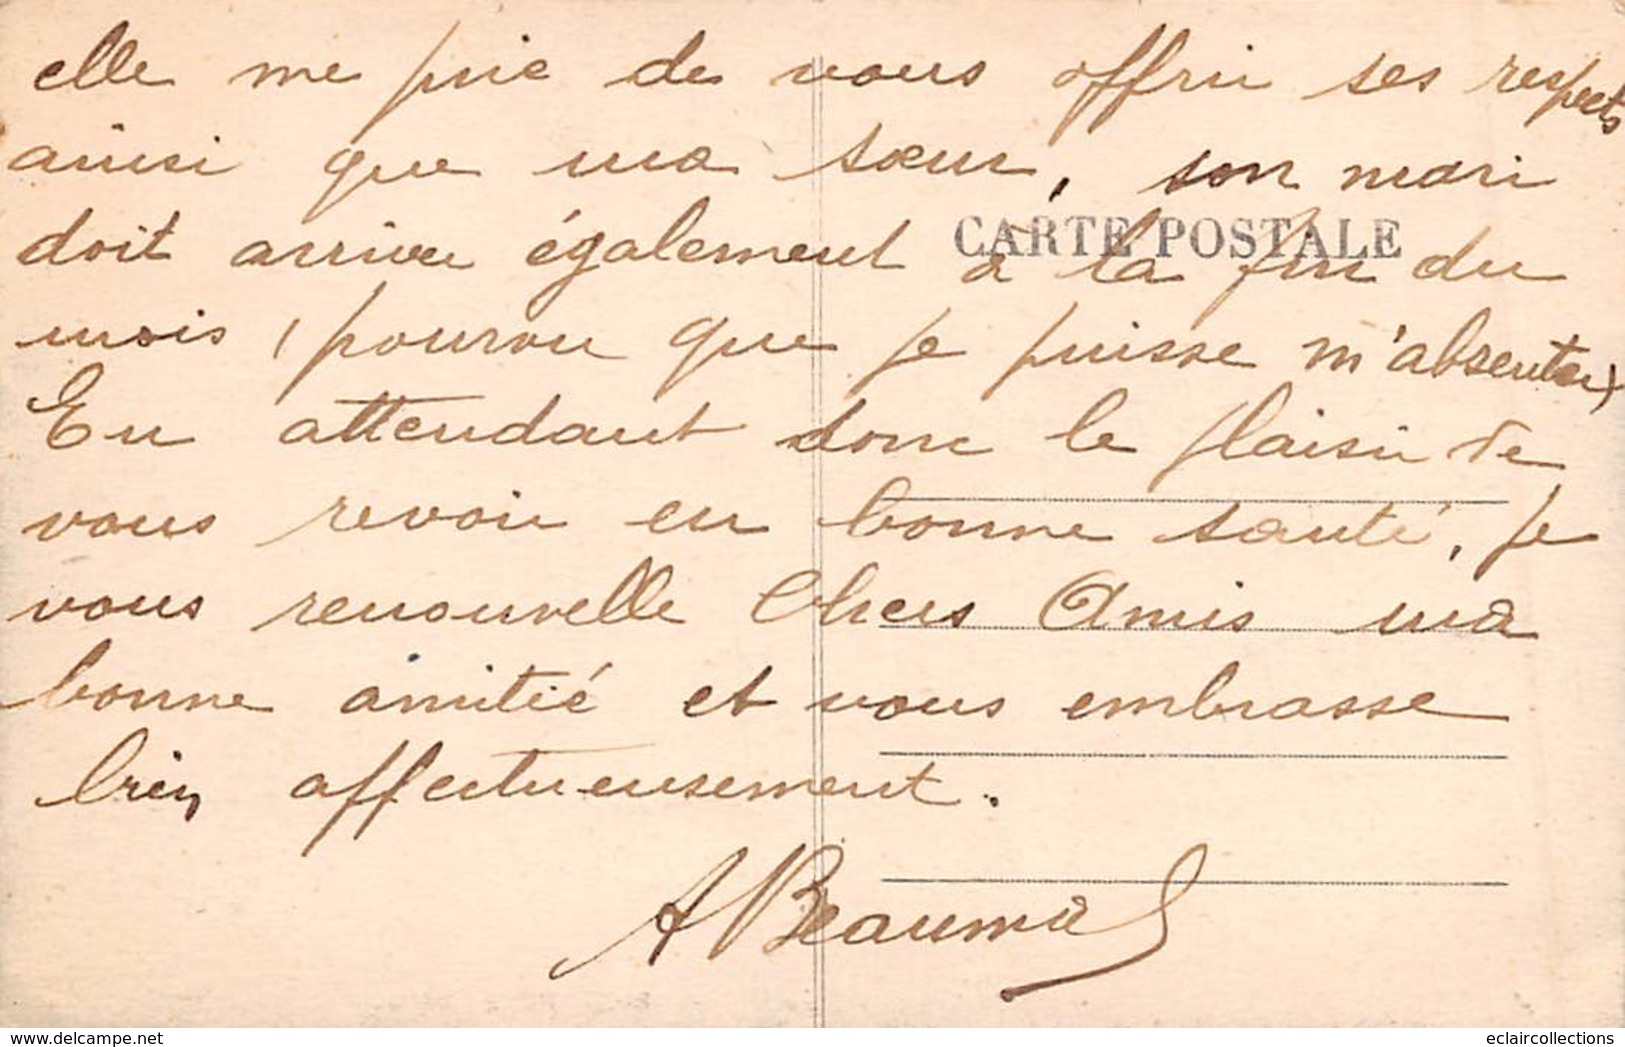 elle me prie de vous offrir ses respects
ainsi que ma sœur, son mari
CARTE POSTALE
doit arriver également à la fin du
mois, (pourvu que je puisse m'absenter)
En attendant donc le plaisir de
vous revoir en bonne santé, je
vous renouvelle Chers Amis ma
bonne amitié et vous embrasse
bien affectueusement.
A Beauma
delcampe.net
eclaircollections